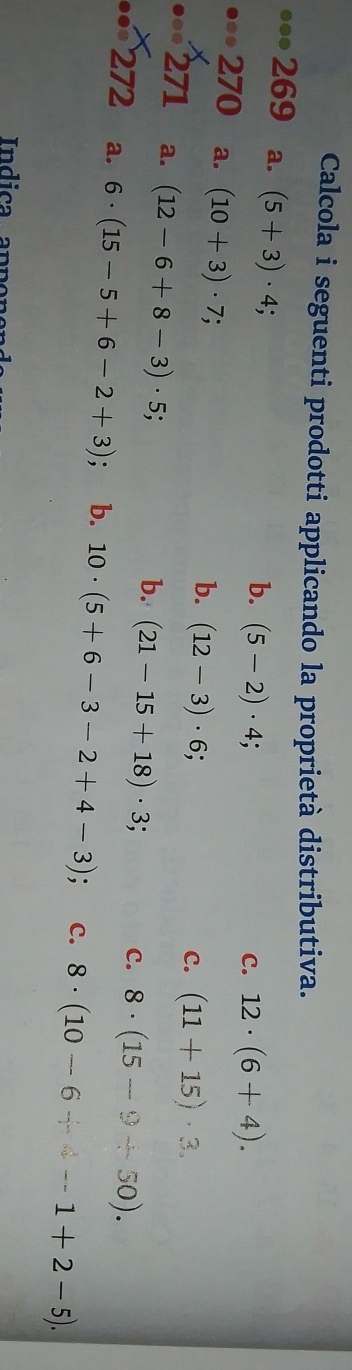 Calcola i seguenti prodotti applicando la proprietà distributiva.
269 a. (5 + 3) · 4; b. (5 − 2) · 4; c. 12 · (6 + 4).
270 a. (10 + 3) · 7; b. (12 − 3) · 6; c. (11 + 15) · 3.
271 a. (12 − 6 + 8 − 3) · 5; b. (21 − 15 + 18) · 3; c. 8 · (15 − 9 + 50).
272 a. 6 · (15 − 5 + 6 − 2 + 3); b. 10 · (5 + 6 − 3 − 2 + 4 − 3); c. 8 · (10 − 6 + 4 − 1 + 2 − 5).
Indica